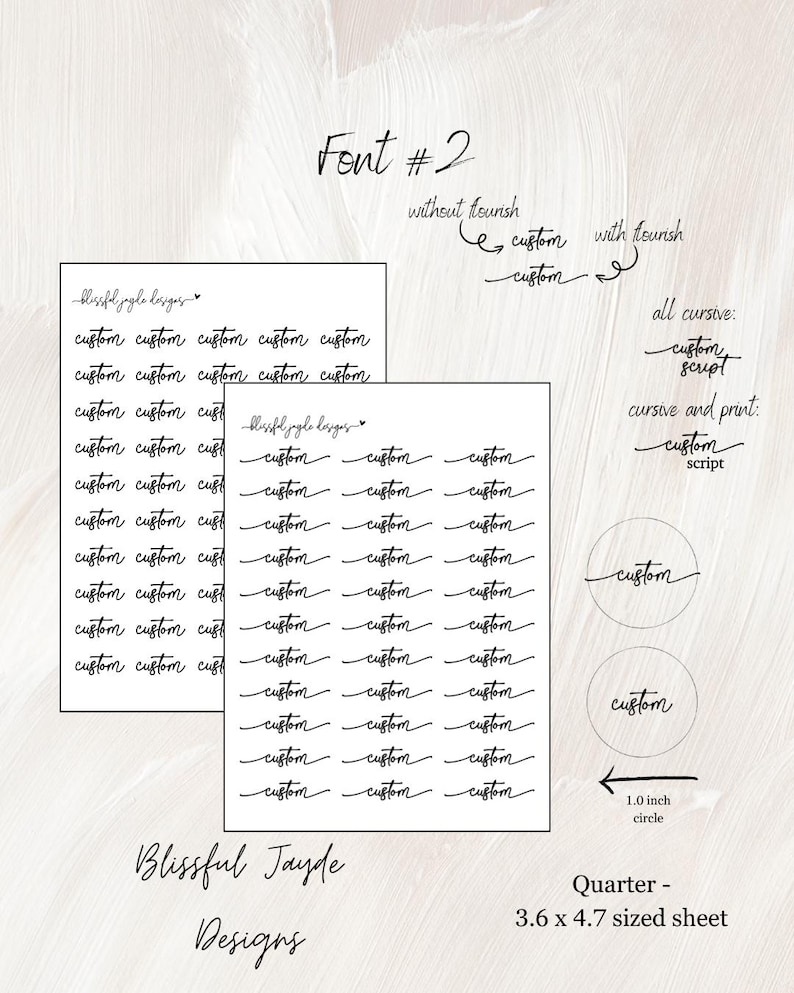 Font #2
without flourish
custom
with flourish
custom
all cursive:
custom
script
cursive and print:
custom
script
blissful jayde designs
custom custom custom custom custom
custom custom custom custom custom
custom custom cus
custom custom cus
custom custom cus
custom custom cus
custom custom cus
custom custom cus
custom custom cus
custom custom cus
blissful jayde designs
custom custom custom
custom custom custom
custom custom custom
custom custom custom
custom custom custom
custom custom custom
custom custom custom
custom custom custom
custom custom custom
custom custom custom
custom custom custom
custom
custom
1.0 inch
circle
Blissful Jayde
Designs
Quarter -
3.6 x 4.7 sized sheet